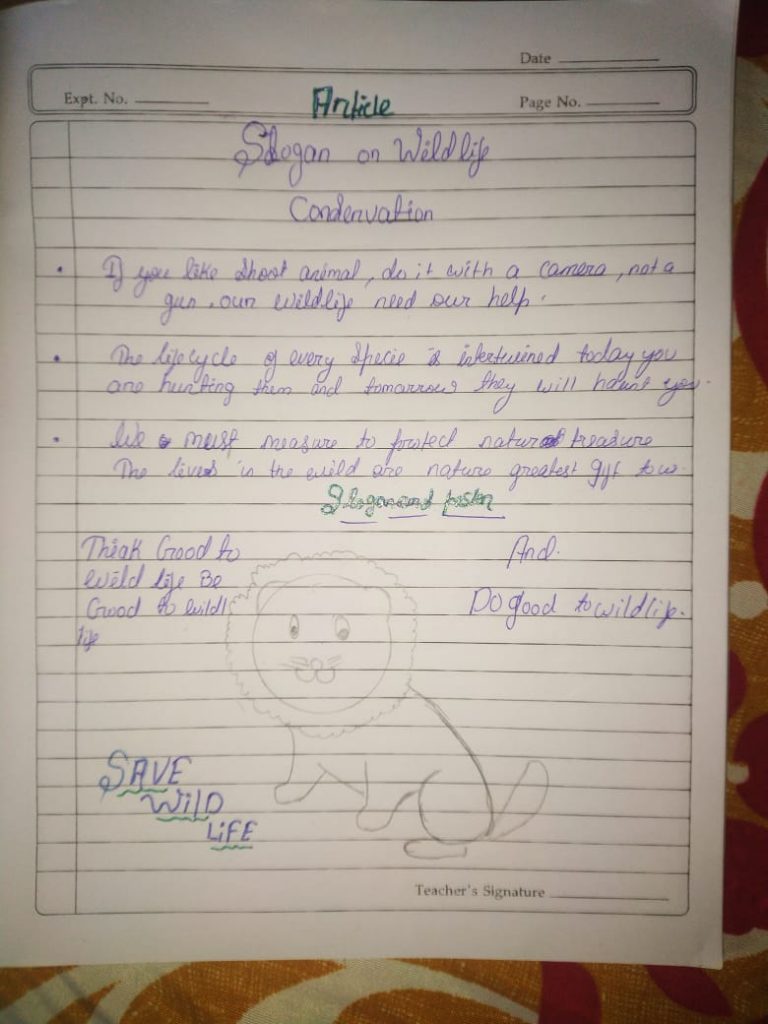 Date
Expt. No.
Article
Page No.
Slogan on Wildlife
Condervation
• If you like shoot animal, do it with a camera, not a
gun, our wildlife need our help.
• The lifecycle of every specie is intertwined today you
are hunting them and tomorrow they will haunt you.
• We must measure to protect natural treasure
The lives in the wild are nature greatest gift to us.
Slogan and poster
Think Good to
wild life Be
Good to wild
life
And.
Do good to wildlife.
SAVE
WilD
LiFE
Teacher's Signature